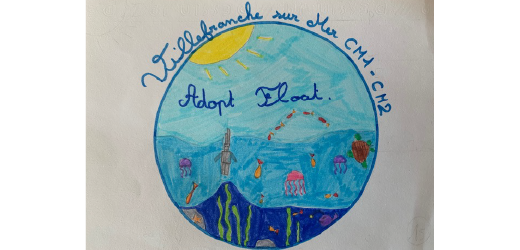 Villefranche sur Mer CM1-CM2
Adopt Float.